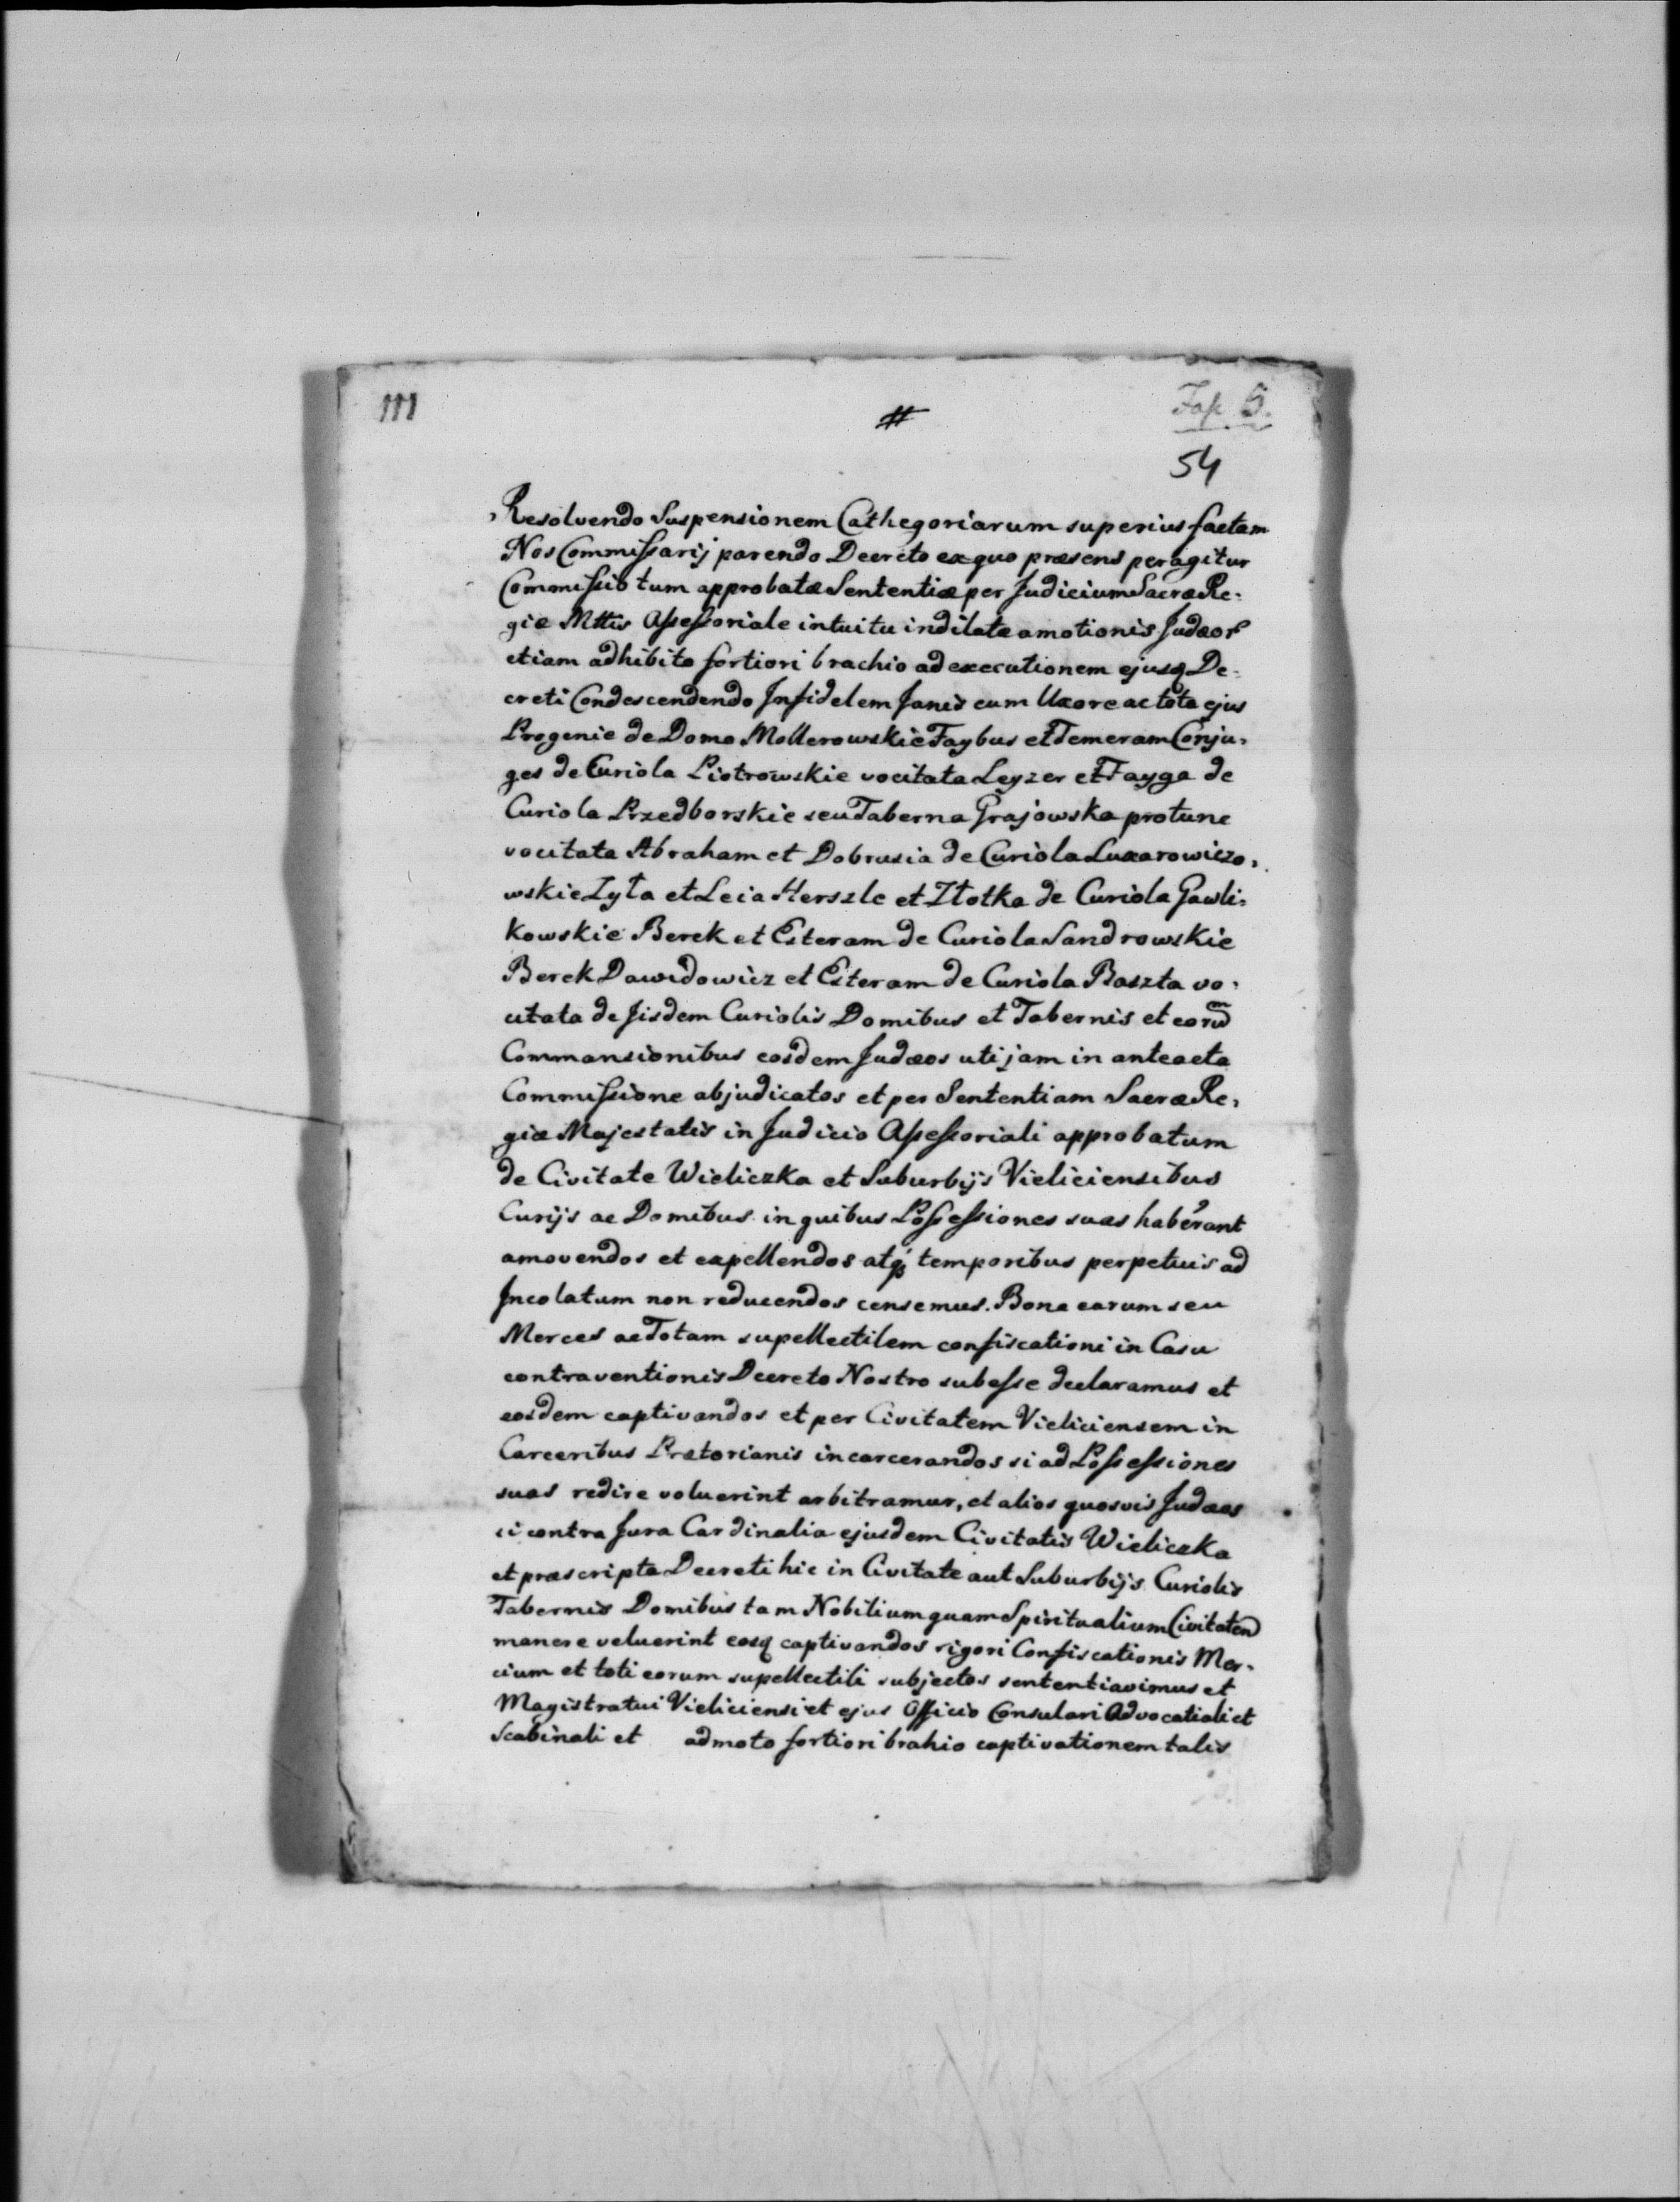 111
#
Fasc 6.
54
Resolvendo Suspensionem Cathegoriarum superius factam
Nos Commissarij parendo Decreto ex quo præsens peragitur
Commissio tum approbatæ Sententiæ per Judicium Sacræ Re-
giæ Mttis Assessoriale intuitu indilatæ amotionis Judæor
etiam adhibito fortiori brachio ad executionem ejusq De-
creti Condescendendo Infidelem Janis cum Uxore ac tota ejus
Progenie de Domo Mollerowskie Faybus et Temeram Conju-
ges de Curiola Piotrowskie vocitata Leyzer et Fayga de
Curiola Przedborskie seu Taberna Grajowska protunc
vocitata Abraham et Dobrusia de Curiola Luxarowiczo-
wskie Zyła et Leia Herszle et Złotka de Curiola Gawli-
kowskie Berek et Esteram de Curiola Sandrowskie
Berek Dawidowicz et Esteram de Curiola Baszta vo-
citata de Jisdem Curiolis Domibus et Tabernis et eorum
Commansionibus eosdem Judæos uti jam in anteacta
Commissione abjudicatos et per Sententiam Sacræ Re-
giæ Majestatis in Judicio Assessoriali approbatum
de Civitate Wieliczka et Suburbijs Vieliciensibus
Curijs ac Domibus in quibus Possessiones suas haberant
amovendos et expellendos atq temporibus perpetuis ad
Incolatum non reducendos censemus. Bona earum seu
Merces ac Totam supellectilem confiscationi in Casu
contraventionis Decreto Nostro subesse declaramus et
eosdem captivandos et per Civitatem Vieliciensem in
Carceribus Prætorianis incarcerandos si ad Possessiones
suas redire voluerint arbitramur, et alios quosvis Judæos
si contra Jura Cardinalia ejusdem Civitatis Wieliczka
et præscripta Decreti hic in Civitate aut Suburbijs Curiolis
Tabernis Domibus tam Nobilium quam Spiritualium Civitaten
manere voluerint eosq captivandos rigori Confiscationis Mer-
cium et toti eorum supellectili subjectos sententiavimus et
Magistratui Vieliciensi et ejus Officio Consulari Advocatiali et
Scabinali et admoto fortiori brahio captivationem talis